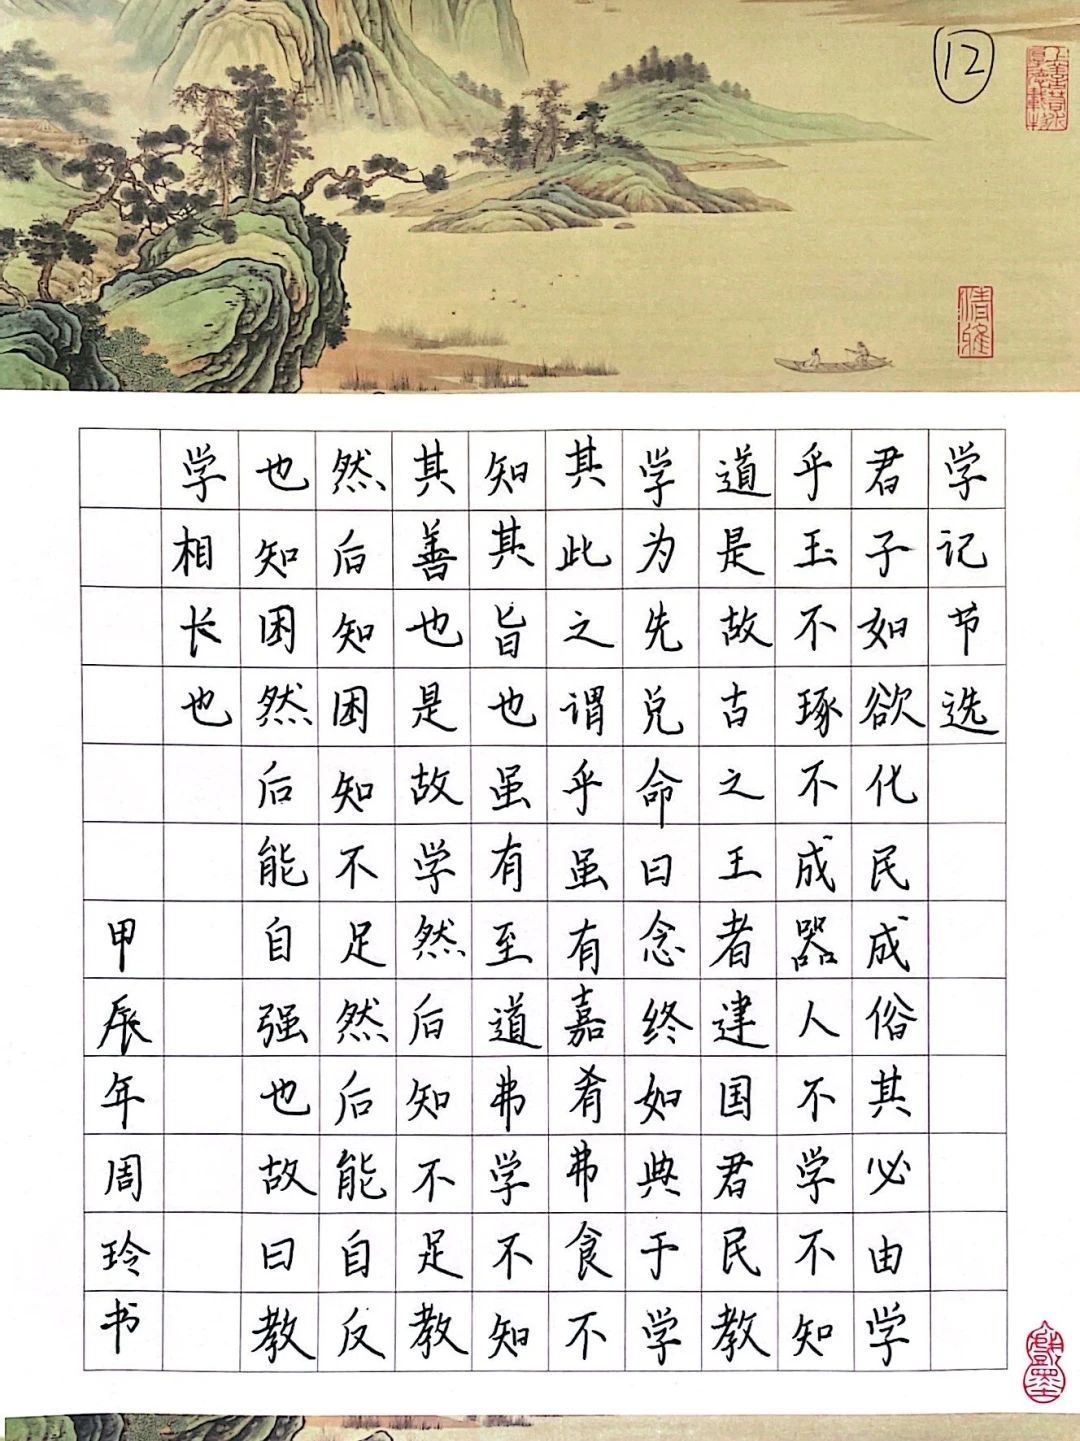 ⑫
上善若水
厚德载物
清雅
学记节选
君子如欲化民成俗其必由学
乎玉不琢不成器人不学不知
道是故古之王者建国君民教
学为先兑命曰念终如典于学
其此之谓乎虽有嘉肴弗食不
知其旨也虽有至道弗学不知
其善也是故学然后知不足教
然后知困知不足然后能自反
也知困然后能自强也故曰教
学相长也
甲辰年周玲书